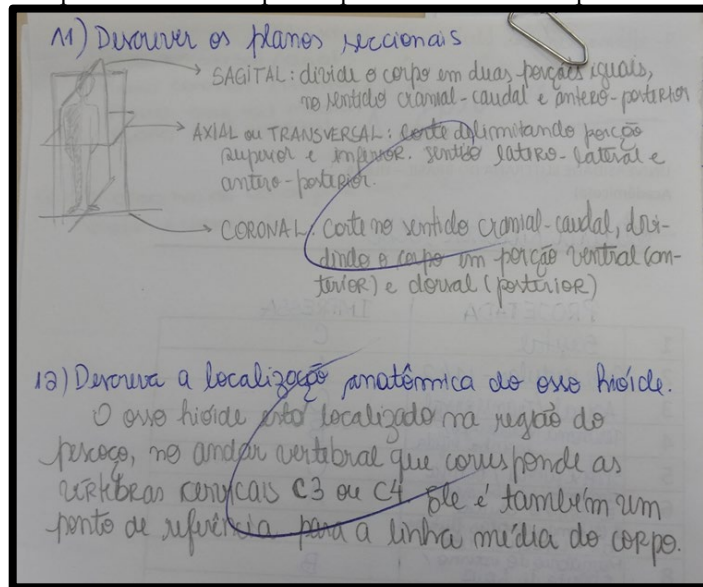 11) Descrever os planos seccionais
SAGITAL: divide o corpo em duas porções iguais,
no sentido cranial-caudal e antero-posterior
AXIAL ou TRANSVERSAL: corte delimitando porção
superior e inferior. sentido latero-lateral e
antero-posterior.
CORONAL: corte no sentido cranial-caudal, divi-
dindo o corpo em porção ventral (an-
terior) e dorsal (posterior)
12) Descreva a localização anatômica do osso hióide.
O osso hióide está localizado na região do
pescoço, no andar vertebral que corresponde as
vértebras cervicais C3 ou C4. Ele é também um
ponto de referência para a linha média do corpo.